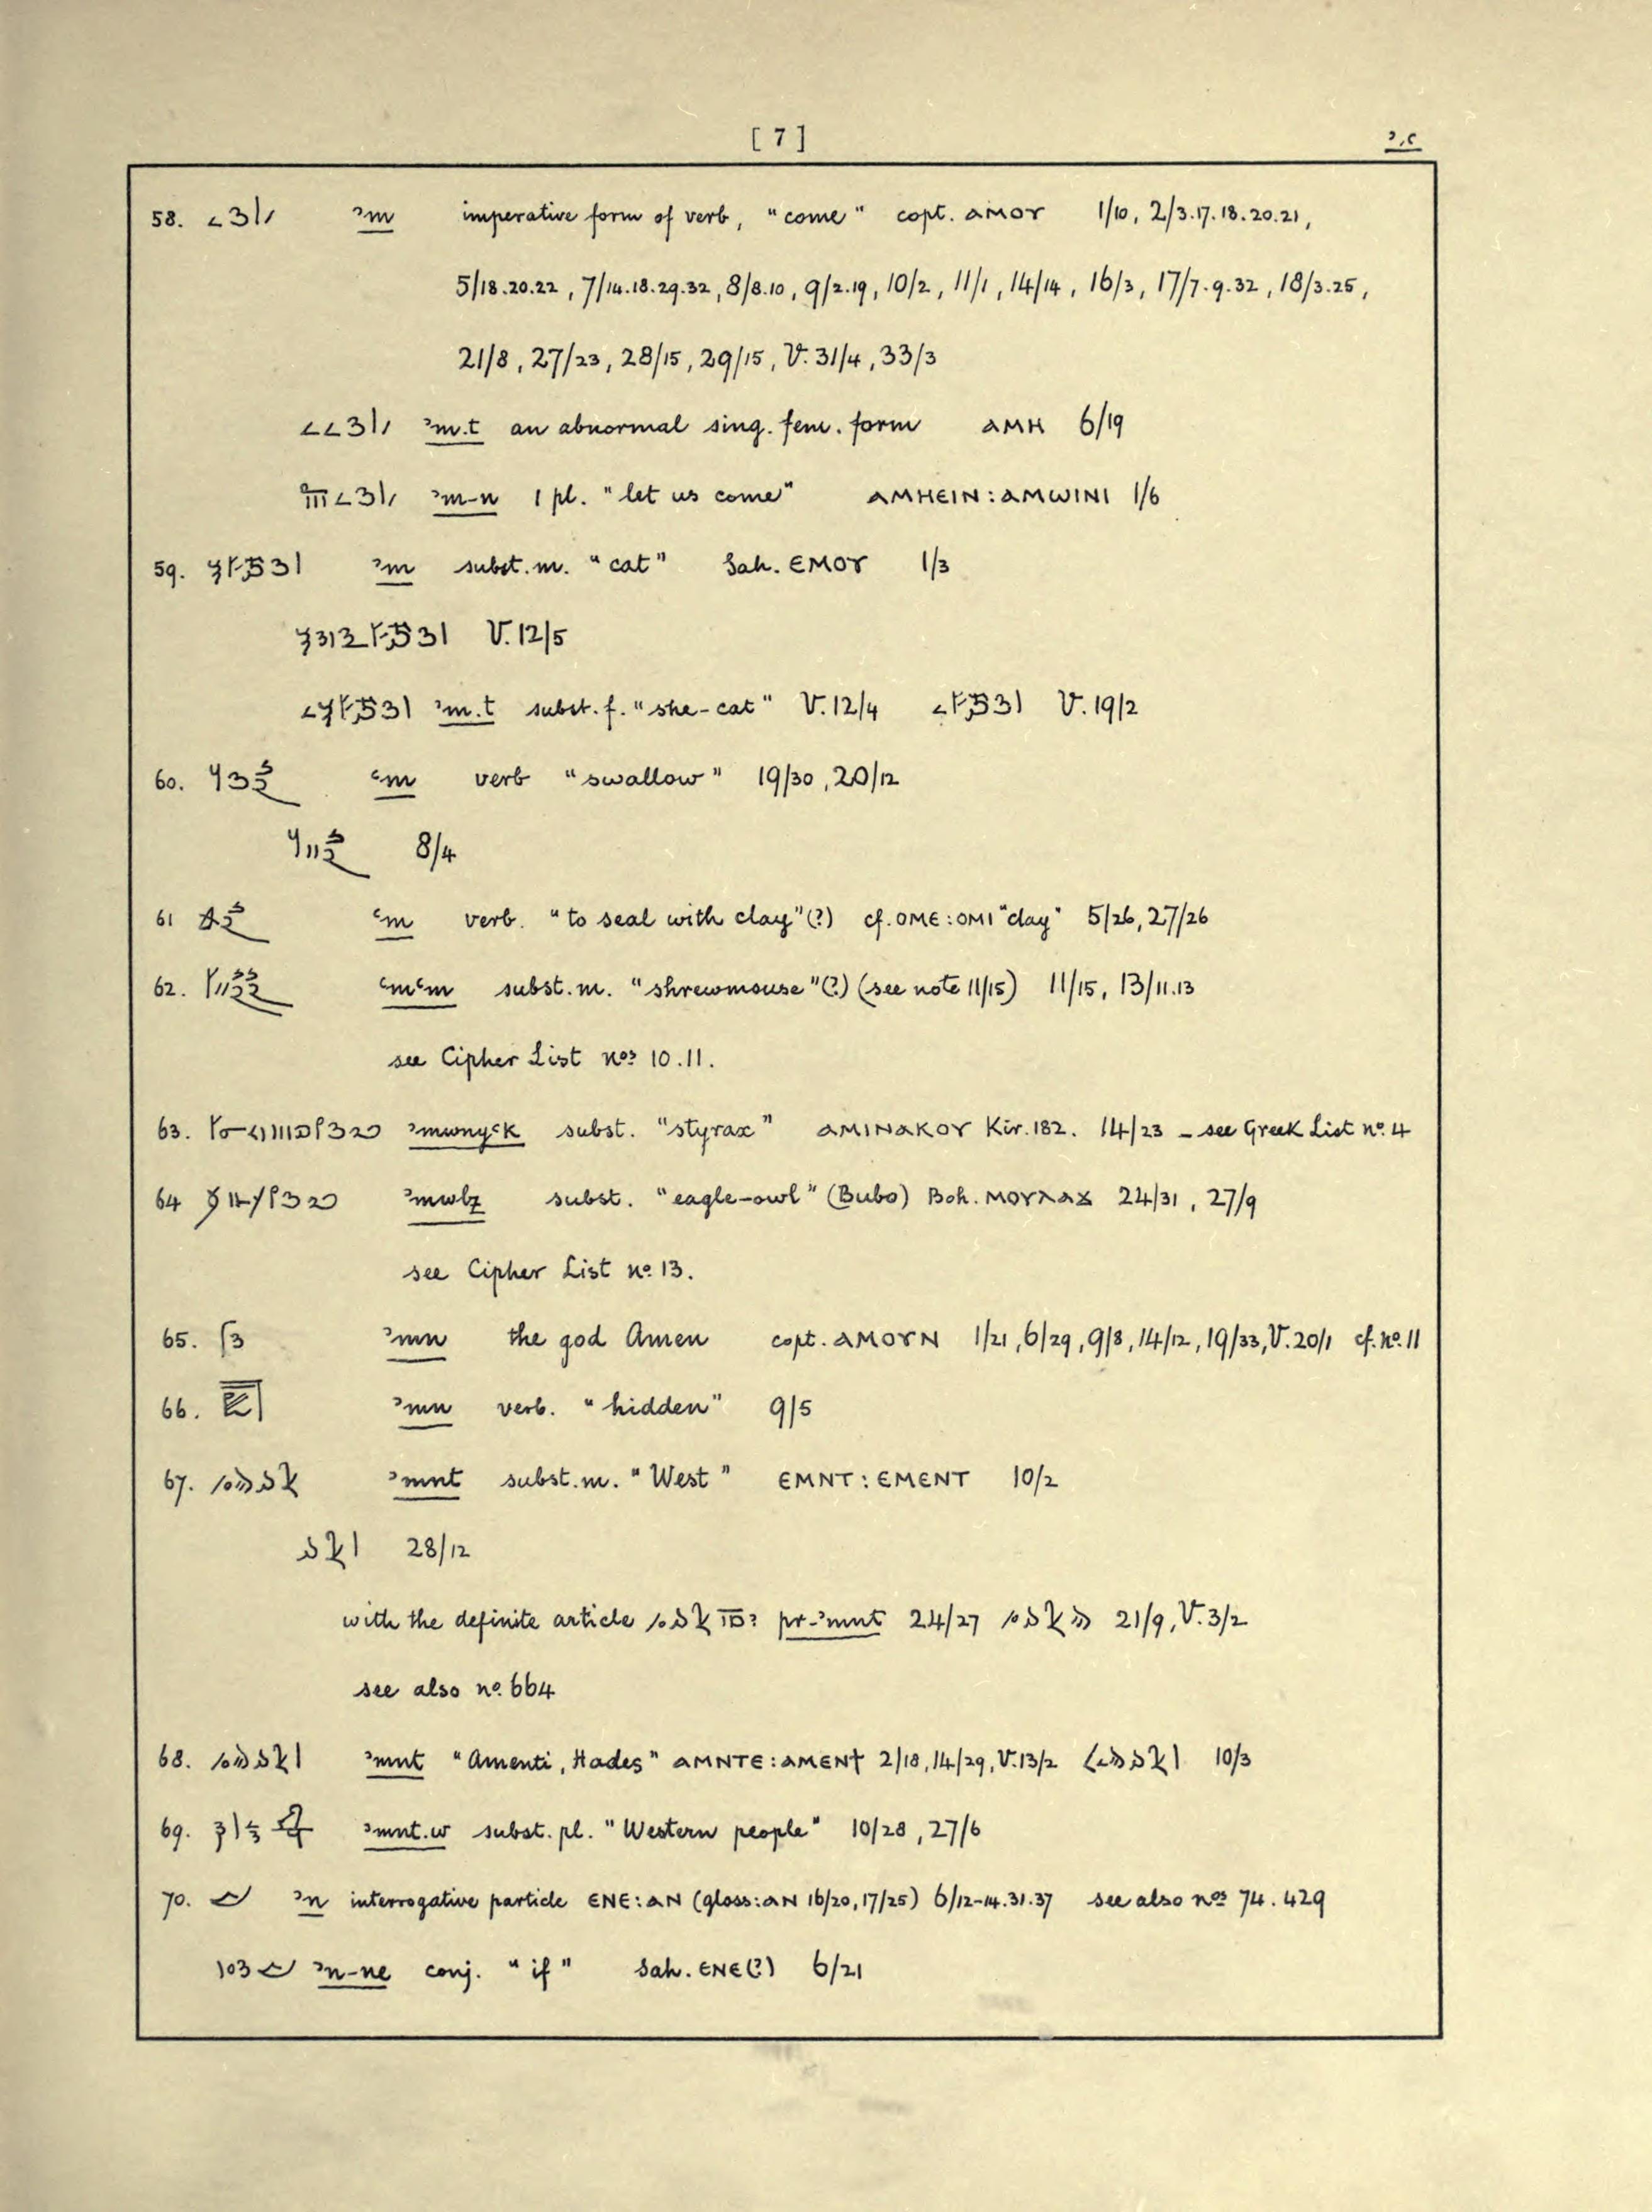 [7] ꜣ,ꜥ
58. ꜣm imperative form of verb, "come" copt. ⲁⲙⲟⲩ 1/10, 2/3.17.18.20.21,
5/18.20.22, 7/14.18.29.32, 8/8.10, 9/2.19, 10/2, 11/1, 14/14, 16/3, 17/7.9.32, 18/3.25,
21/8, 27/23, 28/15, 29/15, V. 31/4, 33/3
ꜣm.t an abnormal sing. fem. form ⲁⲙⲏ 6/19
ꜣm-n 1 pl. "let us come" ⲁⲙⲏⲉⲓⲛ : ⲁⲙⲱⲓⲛⲓ 1/6
59. ꜣm subst. m. "cat" Sah. ⲉⲙⲟⲩ 1/3
V. 12/5
ꜣm.t subst. f. "she-cat" V. 12/4 V. 19/2
60. ꜥm verb "swallow" 19/30, 20/12
8/4
61 ꜥm verb. "to seal with clay" (?) cf. ⲟⲙⲉ : ⲟⲙⲓ "clay" 5/26, 27/26
62. ꜥmꜥm subst. m. "shrewmouse" (?) (see note 11/15) 11/15, 13/11.13
see Cipher List nos 10.11.
63. ꜣmwnyꜥk subst. "styrax" ⲁⲙⲓⲛⲁⲕⲟⲩ Kir. 182. 14/23 – see Greek List no. 4
64 ꜣmwlz subst. "eagle-owl" (Bubo) Boh. ⲙⲟⲩⲗⲁϫ 24/31, 27/9
see Cipher List no. 13.
65. ꜣmn the god Amen copt. ⲁⲙⲟⲩⲛ 1/21, 6/29, 9/8, 14/12, 19/33, V. 20/1 cf. no. 11
66. ꜣmn verb. "hidden" 9/5
67. ꜣmnt subst. m. "West" ⲉⲙⲛⲧ : ⲉⲙⲉⲛⲧ 10/2
28/12
with the definite article pr-ꜣmnt 24/27 21/9, V. 3/2
see also no. 664
68. ꜣmnt "Amenti, Hades" ⲁⲙⲛⲧⲉ : ⲁⲙⲉⲛϯ 2/18, 14/29, V. 13/2 10/3
69. ꜣmnt.w subst. pl. "Western people" 10/28, 27/6
70. ꜣn interrogative particle ⲉⲛⲉ : ⲁⲛ (gloss : ⲁⲛ 16/20, 17/25) 6/12-14.31.37 see also nos 74. 429
ꜣn-ne conj. "if" Sah. ⲉⲛⲉ (?) 6/21